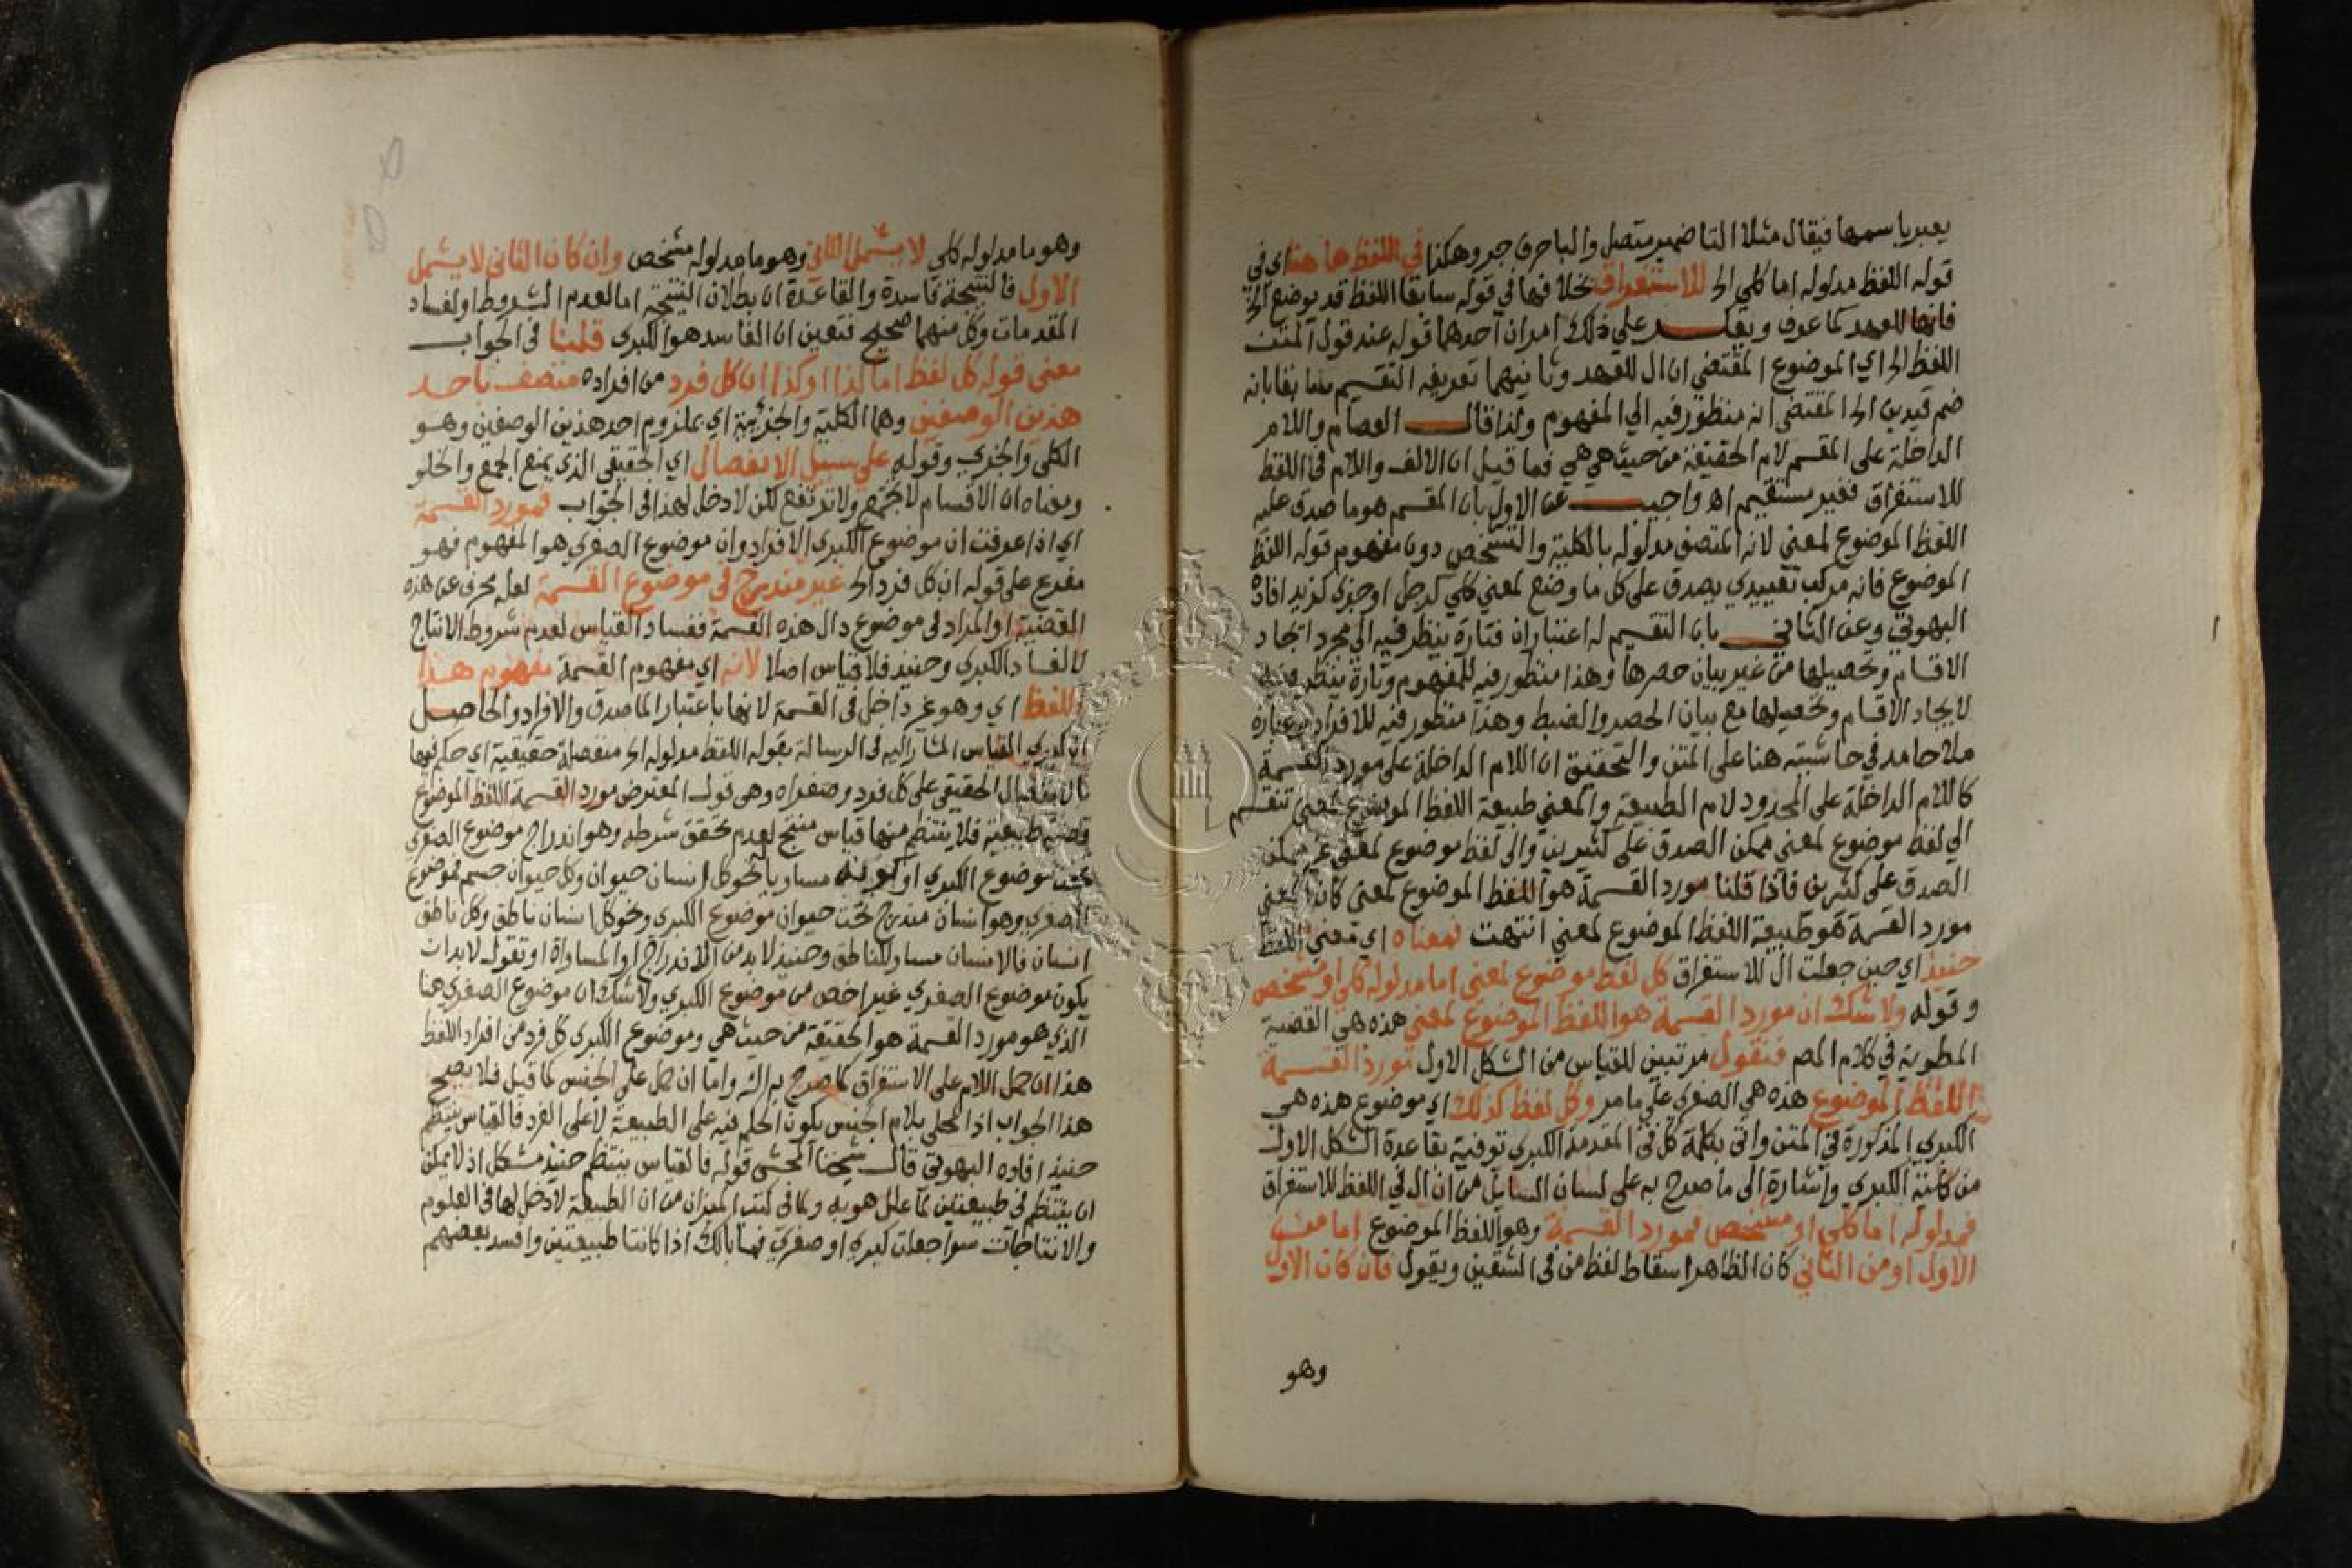 يعبر باسمها فيقال مثلا التا ضمير متصل والبا حرف جر وهكذا في اللفظ ها هنا اي في
قوله اللفظ مدلوله اما كلي الخ للاستغراق بخلافها في قوله سابقا اللفظ قد يوضع الخ
فانها للعهد كما عرف ويعكر على ذلك امران احدهما قوله عند قول المتن
اللفظ الخ اي الموضوع المقتضي ان ال للعهد وثانيهما تعريف التقسيم بانه
ضم قيدين الخ المقتضي انه منظور فيه الي المفهوم ولذا قال العصام واللام
الداخلة على المقسم لام الحقيقة من حيث هي هي فما قيل ان الالف واللام في اللفظ
للاستغراق فغير مستقيم اه واجيب عن الاول بان المقسم هو ما صدق عليه
اللفظ الموضوع لمعني لانه المتصف مدلوله بالكلية والتشخص دون مفهوم قوله اللفظ
الموضوع فانه مركب تقييدي يصدق على كل ما وضع لمعني كلي كرجل او جزي كزيد افاده
البهوتي وعن الثاني بان التقسيم له اعتباران فتارة ينظر فيه الي مجرد ايجاد
الاقسام وتحصيلها من غير بيان حصرها وهذا منظور فيه للمفهوم وتارة ينظر فيه
لايجاد الاقسام وتحصيلها مع بيان الحصر والضبط وهذا منظور فيه للافراد وعبارة
ملا حامد في حاشيته هنا على المتن والتحقيق ان اللام الداخلة على مورد القسمة
كاللام الداخلة على المحدود لام الطبيعة والمعني طبيعة اللفظ الموضوع لمعني تنقسم
الي لفظ موضوع لمعني ممكن الصدق على كثيرين والى لفظ موضوع لمعني غير ممكن
الصدق على كثيرين فاذا قلنا مورد القسمة هو اللفظ الموضوع لمعنى كان المعني
مورد القسمة هو طبيعة اللفظ الموضوع لمعني انتهت فمعناه اي معني اللفظ
حينئذ اي حين جعلت ال للاستغراق كل لفظ موضوع لمعنى اما مدلوله كلي او مشخص
وقوله ولا شك ان مورد القسمة هو اللفظ الموضوع لمعني هذه هي القضية
المطوية في كلام المص فنقول مرتبين للقياس من الشكل الاول مورد القسمة
اللفظ الموضوع هذه هي الصغرى على ما مر وكل لفظ كذلك اي موضوع هذه هي
الكبري المذكورة في المتن واتي بكلمة كل في المقدمة الكبري توفية بقاعدة الشكل الاول
من كلية الكبري واشارة الى ما صرح به على لسان السايل من ان ال في اللفظ للاستغراق
فمدلوله اما كلي او مشخص فمورد القسمة وهو اللفظ الموضوع اما من
الاول او من الثاني كان الظاهر اسقاط لفظ من في الشقين ويقول فان كان الاول
وهو
وهو ما مدلوله كلي لا يشمل الثاني وهو ما مدلوله مشخص وان كان الثاني لا يشمل
الاول فالنتيجة فاسدة والقاعدة ان بطلان النتيجة اما لعدم الشروط او لفساد
المقدمات وكل منهما صحيح فتعين ان الفاسد هو الكبرى قلنا في الجواب
معنى قوله كل لفظ اما كذا او كذا ان كل فرد من افراده متصف باحد
هذين الوصفين وهما الكلية والجزئية اي بملزوم احد هذين الوصفين وهو
الكلي والجزي وقوله على سبيل الانفصال اي الحقيقي الذي يمنع الجمع والخلو
ومعناه ان الاقسام لا تجتمع ولا ترتفع لكن لا دخل لهذا في الجواب فمورد القسمة
اي اذا عرفت ان موضوع الكبري الافراد وان موضوع الصغري هو المفهوم فهو
مفرع على قوله ان كل فرد الخ غير مندرج في موضوع القسمة لعله محرف عن هذه
القضية او المراد في موضوع دال هذه القسمة ففساد القياس لعدم شروط الانتاج
لا لفساد الكبري وحينئذ فلا قياس اصلا لانه اي مفهوم القسمة مفهوم هذا
اللفظ اي وهو غير داخل في القسمة لانها باعتبار الماصدق والافراد والحاصل
ان كبري القياس المشار اليه في الرسالة بقوله اللفظ مدلوله الخ منفصلة حقيقية اي حكم فيها
بالانفصال الحقيقي على كل فرد وصغراه وهي قول المعترض مورد القسمة اللفظ الموضوع
قضية طبيعية فلا ينتظم منها قياس منتج لعدم تحقق شرطه وهو اندراج موضوع الصغري
تحت موضوع الكبري او كونه مساويا نحو كل انسان حيوان وكل حيوان جسم فموضوع
الصغري وهو انسان مندرج تحت حيوان موضوع الكبري ونحو كل انسان ناطق وكل ناطق
انسان فالانسان مساو للناطق وحينئذ لابد من الاندراج او المساواة او تقول لابد ان
يكون موضوع الصغري غير اخص من موضوع الكبري ولا شك ان موضوع الصغري هنا
الذي هو مورد القسمة هو الحقيقة من حيث هي وموضوع الكبري كل فرد من افراد اللفظ
هذا ان حمل اللام على الاستغراق كما صرح به ال واما ان حمل على الجنس كما قيل فلا يصح
هذا الجواب اذ المحلى بلام الجنس يكون الحكم فيه على الطبيعة لا على الفرد فالقياس ينتظم
حينئذ افاده البهوتي قال شيخنا المحشى قوله فالقياس ينتظم حينئذ مشكل اذ لا يمكن
ان ينتظم في طبيعتين كما علل هو به ولما في كتب الميزان من ان الطبيعة لا دخل لها في العلوم
والانتاجات سوا جعلت كبري او صغري فما بالك اذا كانتا طبيعتين وافسد بعضهم